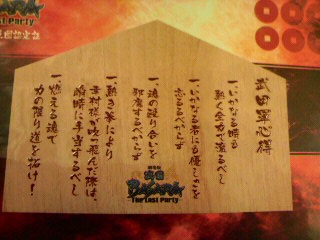 BASARA
The Last Party
武田軍心得
一、いかなる時も
熱く全力で漲るべし
一、いかなる者にも優しさを
忘るるべからず
一、魂の殴り合いを
邪魔するべからず
一、熱き拳により
幸村様が吹っ飛んだ際は、
瞬時に手当するべし
一、燃える魂で
力の限り道を拓け！
劇場版
戦国
BASARA
The Last Party